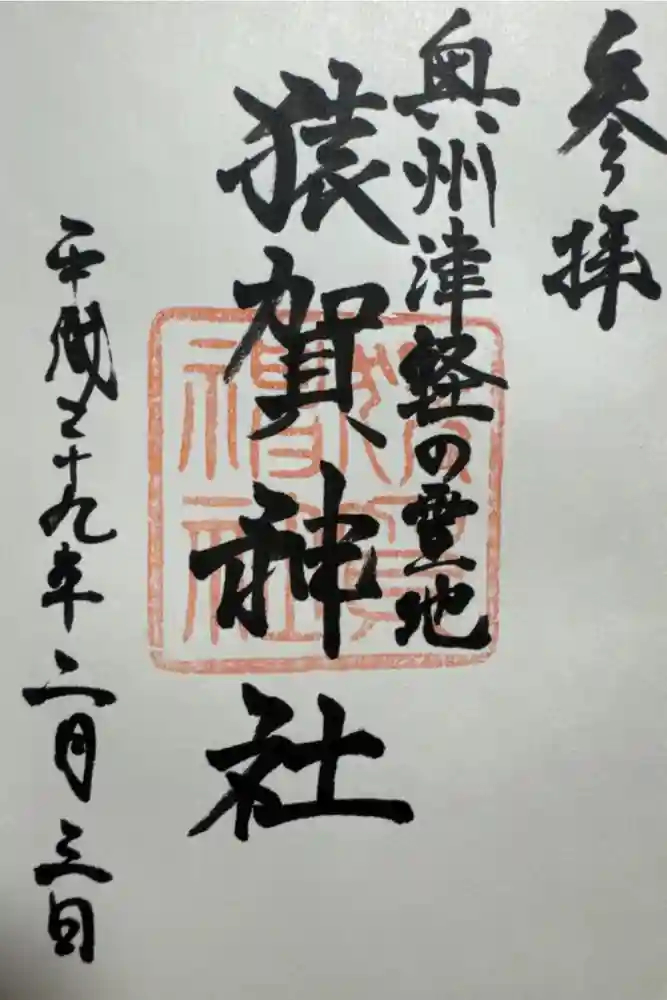 参拝
奥州津軽の霊地
猿賀神社
平成二十九年二月三日
猿賀神社